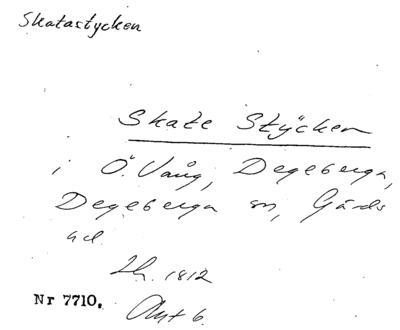 Skatastycken
Skate Stÿcken
i Ö. Vång, Degeberga,
Degeberga sn, Gärds
hd.
Lh. 1812
Nr 7710. Akt 6.